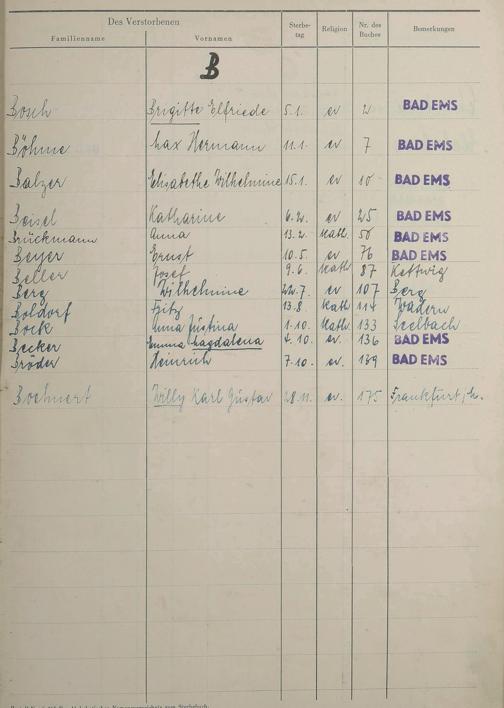 Des Verstorbenen
Familienname Vornamen Sterbe- tag Religion Nr. des Buches Bemerkungen
B
Bosch Brigitte Elfriede 5.1. ev 2 BAD EMS
Böhme Max Hermann 11.1. ev 7 BAD EMS
Balzer Elisabethe Wilhelmine 15.1. ev 10 BAD EMS
Beisel Katharine 6.2. ev 25 BAD EMS
Brückmann Anna 13.2. Kath. 50 BAD EMS
Beyer Ernst 10.5. ev 76 BAD EMS
Beller Josef 9.6. Kath 87 Kettwig
Berg Wilhelmine 22.7. ev 107 Berg
Boldorf Fritz 13.8. Kath 114 Wadern
Bock Anna Justina 1.10. Kath. 133 Seelbach
Becker Emma Magdalena 4.10. ev. 136 BAD EMS
Bröder Heinrich 7.10. ev 139 BAD EMS
Bochnert Willy Karl Gustav 28.11. ev. 175 Frankfurt,